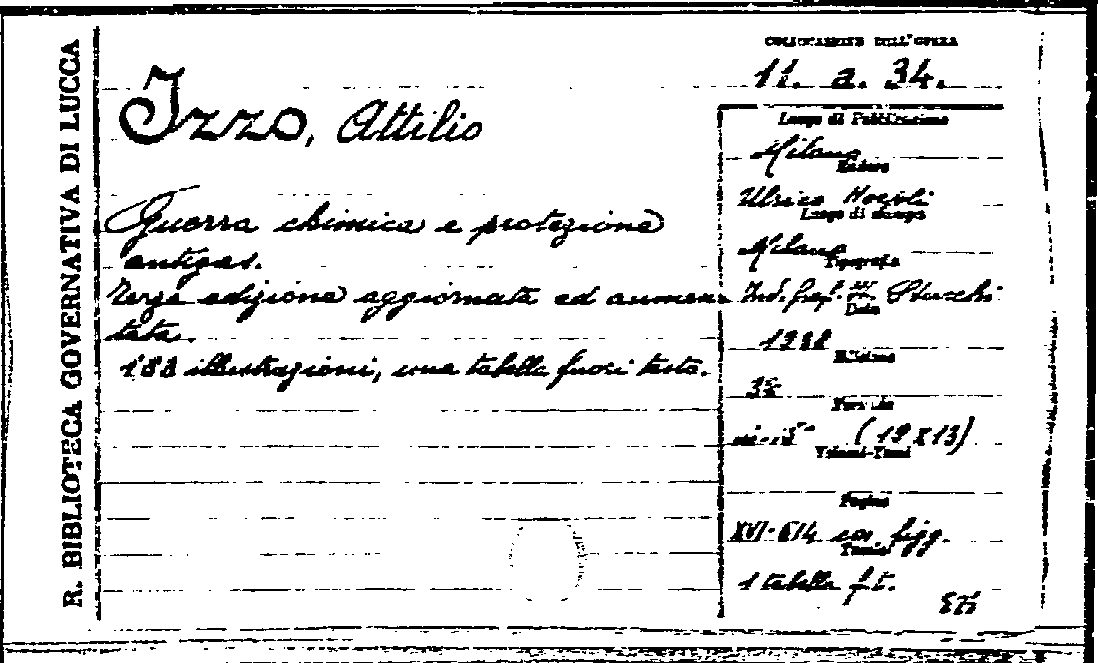 R. BIBLIOTECA GOVERNATIVA DI LUCCA
COLLOCAMENTO DELL'OPERA
11. a. 34.
Izzo, Attilio
Guerra chimica e protezione
antigas.
Terza edizione aggiornata ed aumen-
tata.
188 illustrazioni, una tabella fuori testo.
Luogo di Pubblicazione
Milano
Editore
Ulrico Hoepli
Luogo di stampa
Milano
Tipografia
Ind. graf. Stucchi
Data
Edizione
3ª
Formato
(19 x 13)
Volumi-Tomi
Pagine
XVI-614 con figg.
Tavole
1 tabella f.t.